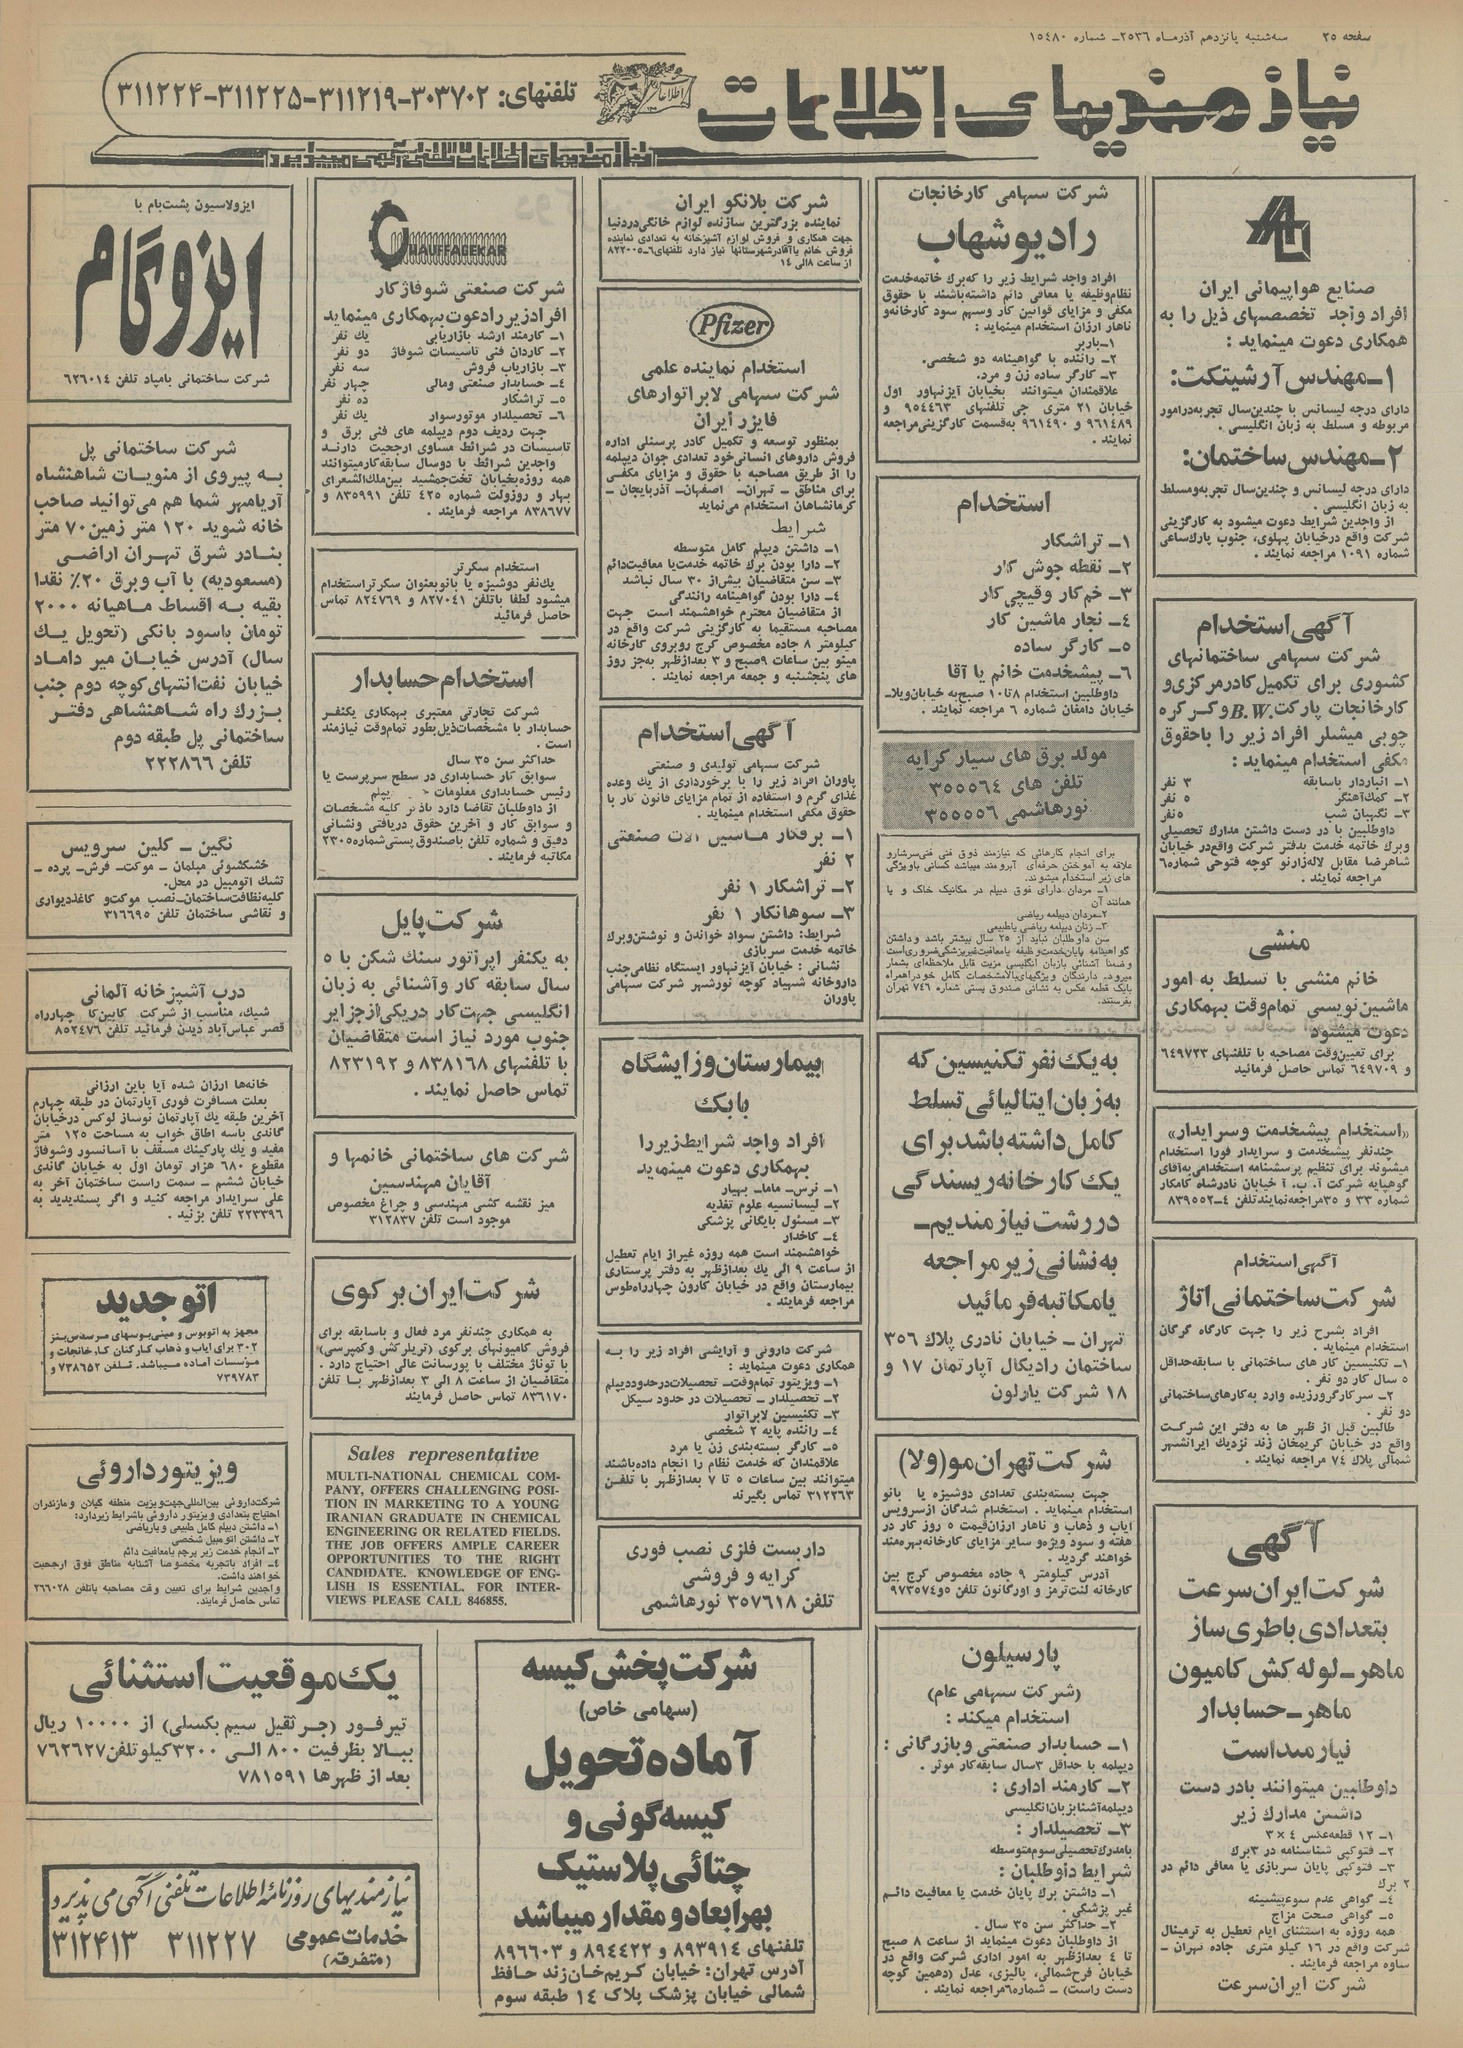 صفحه ۲۵ سه‌شنبه پانزدهم آذرماه ۲۵۳۶ــ شماره ۱۵۴۸۰
نیازمندیهای اطلاعات
تلفنهای: ۳۰۳۷۰۲-۳۱۱۲۱۹-۳۱۱۲۲۵-۳۱۱۲۲۴
نیازمندیهای اطلاعات تلفنی آگهی میپذیرد
صنایع هواپیمائی ایران
افراد واجد تخصصهای ذیل را به
همکاری دعوت مینماید :
۱ــ مهندس آرشیتکت:
دارای درجه لیسانس با چندین‌سال تجربه‌درامور
مربوطه و مسلط به زبان انگلیسی .
۲ــ مهندس ساختمان:
دارای درجه لیسانس و چندین‌سال تجربه‌ومسلط
به زبان انگلیسی .
از واجدین شرایط دعوت میشود به کارگزینی
شرکت واقع درخیابان پهلوی، جنوب پارک‌ساعی
شماره ۱۰۹۱ مراجعه نمایند .
آگهی استخدام
شرکت سهامی ساختمانهای
کشوری برای تکمیل کادرمرکزی و
کارخانجات پارکت B.W. وکرکره
چوبی میشلر افراد زیر را باحقوق
مکفی استخدام مینماید :
۱ــ انباردار باسابقه ۳ نفر
۲ــ کمک‌آهنگر ۵ نفر
۳ــ نگهبان شب ۵نفر
داوطلبین با در دست داشتن مدارک تحصیلی
وبرک خاتمه خدمت بدفتر شرکت واقع‌درخیابان
شاهرضا مقابل لاله‌زارنو کوچه فتوحی شماره۶
مراجعه نمایند .
منشی
خانم منشی با تسلط به امور
ماشین‌نویسی تمام‌وقت بهمکاری
دعوت میشود
برای تعیین‌وقت مصاحبه با تلفنهای ۶۴۹۷۳۳
و ۶۴۹۷۰۹ تماس حاصل فرمائید
«استخدام پیشخدمت وسرایدار»
چندنفر پیشخدمت و سرایدار فورا استخدام
میشوند برای تنظیم پرسشنامه استخدامی به‌آقای
گوهپایه شرکت آ. ب. آ خیابان نادرشاه کامکار
شماره ۳۳ و ۳۵مراجعه‌نمایندتلفن ۴ــ۸۳۹۵۵۲
آگهی استخدام
شرکت ساختمانی اتاژ
افراد بشرح زیر را جهت کارگاه گرگان
استخدام مینماید .
۱ــ تکنیسین کار های ساختمانی با سابقه‌حداقل
۵ سال کار دو نفر .
۲ــ سرکارگرورزیده وارد به‌کارهای‌ساختمانی
دو نفر .
طالبین قبل از ظهر ها به دفتر این شرکت
واقع در خیابان کریمخان زند نزدیک ایرانشهر
شمالی پلاک ۷۴ مراجعه نمایند .
آگهی
شرکت ایران سرعت
بتعدادی باطری‌ساز
ماهر ــ لوله کش کامیون
ماهر ــ حسابدار
نیازمنداست
داوطلبین میتوانند بادر دست
داشتن مدارک زیر
۱ــ ۱۲ قطعه‌عکس ۴ × ۳
۲ــ فتوکپی شناسنامه در ۳برک
۳ــ فتوکپی پایان سربازی یا معافی دائم در
۲ برک
۴ــ گواهی عدم سوءپیشینه
۵ــ گواهی صحت مزاج
همه روزه به استثنای ایام تعطیل به ترمینال
شرکت واقع در ۱۶ کیلو متری جاده تهران ــ
ساوه مراجعه فرمایند .
شرکت ایران سرعت
شرکت سهامی کارخانجات
رادیوشهاب
افراد واجد شرایط زیر را که‌برک خاتمه‌خدمت
نظام‌وظیفه یا معافی دائم داشته‌باشند با حقوق
مکفی و مزایای قوانین کار وسهم سود کارخانه‌و
ناهار ارزان استخدام مینماید :
۱ــ باربر
۲ــ راننده با گواهینامه دو شخصی.
۳ــ کارگر ساده زن و مرد.
علاقمندان میتوانند بخیابان آیزنهاور اول
خیابان ۲۱ متری جی تلفنهای ۹۵۴۴۶۳ و
۹۶۱۴۸۹ و ۹۶۱۴۹۰ به‌قسمت کارگزینی‌مراجعه
نمایند .
استخدام
۱ــ تراشکار
۲ــ نقطه جوش کار
۳ــ خم‌کار وقیچی‌کار
۴ــ نجار ماشین کار
۵ــ کارگر ساده
۶ــ پیشخدمت خانم یا آقا
داوطلبین استخدام ۸تا۱۰ صبح‌به خیابان‌ویلا ــ
خیابان دامغان شماره ۶ مراجعه نمایند .
مولد برق های سیار کرایه
تلفن های ۳۵۵۵۶۴
نورهاشمی ۳۵۵۵۵۶
برای انجام کارهائی که نیازمند ذوق فنی فنی‌سرشارو
علاقه به آموختن حرفه‌ای آبرومند میباشد کسانی باویژگی
های زیر استخدام میشوند.
۱ــ مردان دارای فوق دیپلم در مکانیک خاک و یا
همانند آن
۲ــ مردان دیپلمه ریاضی
۳ــ زنان دیپلمه ریاضی یاطبیعی
سن داوطلبان نباید از ۲۵ سال بیشتر باشد وداشتن
گواهینامه پایان‌خدمت‌وظیفه یامعافیت‌غیرپزشکی‌ضروری‌است
وضمنا آشنائی بازبان انگلیسی مزیت قابل ملاحظه‌ای بشمار
میرود. دارندگان ویژگیهای‌بالامشخصات کامل خودراهمراه
بایک قطعه عکس به نشانی صندوق پستی شماره ۷۴۶ تهران
بفرستند.
به یک نفر تکنیسین که
به زبان ایتالیائی تسلط
کامل داشته باشد برای
یک کارخانه ریسندگی
در رشت نیازمندیم ــ
به نشانی زیر مراجعه
یامکاتبه فرمائید
تهران ــ خیابان نادری پلاک ۳۵۶
ساختمان رادیکال آپارتمان ۱۷ و
۱۸ شرکت یارلون
شرکت تهران مو (ولا)
جهت بسته‌بندی تعدادی دوشیزه یا بانو
استخدام مینماید . استخدام شدگان ازسرویس
ایاب و ذهاب و ناهار ارزان‌قیمت ۵ روز کار در
هفته و سود ویژه‌و سایر مزایای کارخانه‌بهره‌مند
خواهند گردید .
آدرس کیلومتر ۹ جاده مخصوص کرج بین
کارخانه لنت‌ترمز و اورگانون تلفن ۵و۹۷۳۵۷۴
پارسیلون
(شرکت سهامی عام)
استخدام میکند :
۱ــ حسابدار صنعتی وبازرگانی :
دیپلمه با حداقل ۳سال سابقه‌کار موثر .
۲ــ کارمند اداری :
دیپلمه‌آشنابزبان‌انگلیسی
۳ــ تحصیلدار :
بامدرک‌تحصیلی‌سوم‌متوسطه
شرایط داوطلبان :
۱ــ داشتن برک پایان خدمت یا معافیت دائم
غیر پزشکی .
۲ــ حداکثر سن ۳۵ سال .
از داوطلبان دعوت مینماید از ساعت ۸ صبح
تا ۴ بعدازظهر به امور اداری شرکت واقع در
خیابان فرح‌شمالی، پالیزی، عدل (دهمین کوچه
دست راست) ــ شماره۶مراجعه نمایند .
شرکت بلانکو ایران
نماینده بزرگترین سازنده لوازم خانگی‌دردنیا
جهت همکاری و فروش لوازم آشپزخانه به تعدادی نماینده
فروش خانم یاآقادرشهرستانها نیاز دارد تلفنهای۶ــ۸۲۲۰۰۵
از ساعت ۸الی ۱۴
Pfizer
استخدام نماینده علمی
شرکت سهامی لابراتوارهای
فایزر ایران
بمنظور توسعه و تکمیل کادر پرسنلی اداره
فروش داروهای انسانی‌خود تعدادی جوان دیپلمه
را از طریق مصاحبه با حقوق و مزایای مکفــی
برای مناطق ــ تهران ــ اصفهان ــ آذربایجان ــ
کرمانشاهان استخدام می‌نماید
شرایط
۱ــ داشتن دیپلم کامل متوسطه
۲ــ دارا بودن برک خاتمه خدمت‌یا معافیت‌دائم
۳ــ سن متقاضیان بیش‌از ۳۰ سال نباشد
۴ــ دارا بودن گواهینامه رانندگی
از متقاضیان محترم خواهشمند است جهت
مصاحبه مستقیما به کارگزینی شرکت واقع در
کیلومتر ۸ جاده مخصوص کرج روبروی کارخانه
مینو بین ساعات ۹صبح و ۳ بعدازظهر به‌جز روز
های پنجشنبه و جمعه مراجعه نمایند .
آگهی استخدام
شرکت سهامی تولیدی و صنعتی
پاوران افراد زیر را با برخورداری از یک وعده
غذای گرم و استفاده از تمام مزایای قانون کار با
حقوق مکفی استخدام مینماید .
۱ــ برقکار ماشین آلات صنعتی
۲ نفر
۲ــ تراشکار ۱ نفر
۳ــ سوهانکار ۱ نفر
شرایط: داشتن سواد خواندن و نوشتن‌وبرک
خاتمه خدمت سربازی
نشانی : خیابان آیزنهاور ایستگاه نظامی‌جنب
داروخانه شهیاد کوچه نورشهر شرکت سهامی
پاوران
بیمارستان وزایشگاه
بابک
افراد واجد شرایط‌زیررا
بهمکاری دعوت مینماید
۱ــ نرس ــ ماما ــ بهیار
۲ــ لیسانسیه علوم تغذیه
۳ــ مسئول بایگانی پزشکی
۴ــ کاخدار
خواهشمند است همه روزه غیراز ایام تعطیل
از ساعت ۹ الی یک بعدازظهر به دفتر پرستاری
بیمارستان واقع در خیابان کارون چهارراه‌طوس
مراجعه فرمایند .
شرکت داروئی و آرایشی افراد زیر را بــه
همکاری دعوت مینماید :
۱ــ ویزیتور تمام‌وقت ــ تحصیلات‌درحدوددیپلم
۲ــ تحصیلدار ــ تحصیلات در حدود سیکل
۳ــ تکنیسین لابراتوار
۴ــ راننده پایه ۲ شخصی
۵ــ کارگر بسته‌بندی زن یا مرد
علاقمندان که خدمت نظام را انجام داده‌باشند
میتوانند بین ساعات ۵ تا ۷ بعدازظهر باتلفــن
۳۱۲۳۶۳ تماس بگیرند
داربست فلزی نصب فوری
کرایه و فروشی
تلفن ۳۵۷۶۱۸ نورهاشمی
CHAUFFAGEKAR
شرکت صنعتی شوفاژکار
افرادزیر رادعوت بهمکاری مینماید
۱ــ کارمند ارشد بازاریابی یک نفر
۲ــ کاردان فنی تاسیسات شوفاژ دو نفر
۳ــ بازاریاب فروش سه نفر
۴ــ حسابدار صنعتی ومالی چهار نفر
۵ــ تراشکار ده نفر
۶ــ تحصیلدار موتورسوار یک نفر
جهت ردیف دوم دیپلمه های فنی برق و
تاسیسات در شرائط مساوی ارجحیت دارنــد
واجدین شرائط با دوسال سابقه‌کارمیتوانند
همه روزه‌بخیابان تخت‌جمشید بین‌ملک‌الشعرای
بهار و روزولت شماره ۴۲۵ تلفن ۸۳۵۹۹۱ و
۸۳۸۶۷۷ مراجعه فرمایند .
استخدام سکرتر
یک‌نفر دوشیزه یا بانوبعنوان سکرتراستخدام
میشود لطفا باتلفن ۸۲۷۰۴۱ و ۸۲۴۷۶۹ تماس
حاصل فرمائید
استخدام حسابدار
شرکت تجارتی معتبری بهمکاری یکنفر
حسابدار با مشخصات‌ذیل‌بطور تمام‌وقت نیازمند
است .
حداکثر سن ۳۵ سال
سوابق کار حسابداری در سطح سرپرست یا
رئیس حسابداری معلومات
از داوطلبان تقاضا دارد باذکر کلیه مشخصات
و سوابق کار و آخرین حقوق دریافتی ونشانی
دقیق و شماره تلفن باصندوق پستی‌شماره۲۳۰۵
مکاتبه فرمایند .
شرکت پایل
به یکنفر اپرآتور سنک شکن با ۵
سال سابقه کار وآشنائی به زبان
انگلیسی جهت‌کار دریکی‌ازجزایر
جنوب مورد نیاز است متقاضیان
با تلفنهای ۸۳۸۱۶۸ و ۸۲۳۱۹۲
تماس حاصل نمایند .
شرکت های ساختمانی خانمها و
آقایان مهندسین
میز نقشه کشی مهندسی و چراغ مخصوص
موجود است تلفن ۳۱۲۸۳۷
شرکت ایران برکوی
به همکاری چندنفر مرد فعال و باسابقه برای
فروش کامیونهای برکوی (تریلرکش وکمپرسی)
با توناژ مختلف با پورسانت عالی احتیاج دارد .
متقاضیان از ساعت ۸ الی ۳ بعدازظهر بـا تلفن
۸۳۶۱۷۰ تماس حاصل فرمایند
Sales representative
MULTI-NATIONAL CHEMICAL COM-
PANY, OFFERS CHALLENGING POSI-
TION IN MARKETING TO A YOUNG
IRANIAN GRADUATE IN CHEMICAL
ENGINEERING OR RELATED FIELDS.
THE JOB OFFERS AMPLE CAREER
OPPORTUNITIES TO THE RIGHT
CANDIDATE. KNOWLEDGE OF ENG-
LISH IS ESSENTIAL. FOR INTER-
VIEWS PLEASE CALL 846855.
شرکت پخش کیسه
(سهامی خاص)
آماده تحویل
کیسه گونی و
چتائی پلاستیک
بهر ابعاد و مقدار میباشد
تلفنهای ۸۹۳۹۱۴ و ۸۹۴۴۲۲ و ۸۹۶۶۰۳
آدرس تهران: خیابان کریم‌خان‌زند حافظ
شمالی خیابان پزشک پلاک ۱۴ طبقه سوم
ایزولاسیون پشت‌بام با
ایزوگام
شرکت ساختمانی بامیاد تلفن ۶۲۶۰۱۴
شرکت ساختمانی پل
بــه پیروی از منویــات شاهنشاه
آریامهر شما هم می‌توانید صاحب
خانه شوید ۱۲۰ متر زمین۷۰ متر
بنــادر شرق تهــران اراضــی
(مسعودیه) با آب وبرق ۲۰٪ نقدا
بقیه بــه اقساط ماهیانه ۲۰۰۰
تومان باسود بانکی (تحویل یــک
سال) آدرس خیابــان میر دامــاد
خیابان نفت‌انتهای‌کوچه دوم جنب
بــزرک راه شــاهنشاهی دفتــر
ساختمانی پل طبقه دوم
تلفن ۲۲۲۸۶۶
نگین ــ کلین سرویس
خشکشوئی مبلمان ــ موکت ــ فرش ــ پرده ــ
تشک اتومبیل در محل.
کلیه‌نظافت‌ساختمان ــ نصب موکت‌و کاغذدیواری
و نقاشی ساختمان تلفن ۳۱۶۶۹۵
درب آشپزخانه آلمانی
شیک، مناسب از شرکت کابین‌کا چهارراه
قصر عباس‌آباد دیدن فرمائید تلفن ۸۵۲۴۷۶
خانه‌ها ارزان شده آیا باین ارزانی
بعلت مسافرت فوری آپارتمان در طبقه چهارم
آخرین طبقه یک آپارتمان نوساز لوکس درخیابان
گاندی باسه اطاق خواب به مساحت ۱۲۵ متر
مفید و یک پارکینک مسقف با آسانسور وشوفاژ
مقطوع ۶۸۰ هزار تومان اول به خیابان گاندی
خیابان ششم ــ سمت راست ساختمان آخر به
علی سرایدار مراجعه کنید و اگر پسندیدید به
۲۲۳۳۹۶ تلفن بزنید .
اتوجدید
مجهز به اتوبوس و مینی‌بوسهای مرسدس‌بنز
۳۰۲ برای ایاب و ذهاب کارکنان کارخانجات و
مؤسسات آماده میباشد. تلفن ۷۳۸۶۵۲ و
۷۳۹۷۸۳
ویزیتورداروئی
شرکت‌داروئی بین‌المللی‌جهت‌ویزیت منطقه گیلان و مازندران
احتیاج بتعدادی ویزیتور داروئی باشرایط زیردارد:
۱ــ داشتن دیپلم کامل طبیعی و یاریاضی
۲ــ داشتن اتومبیل شخصی
۳ــ انجام خدمت زیر پرچم یامعافیت دائم
۴ــ افراد باتجربه مخصوصا آشنابه مناطق فوق ارجحیت
خواهند داشت.
واجدین شرایط برای تعیین وقت مصاحبه باتلفن ۳۶۶۰۲۸
تماس حاصل فرمایند.
یک موقعیت استثنائی
تیرفور (جرثقیل سیم بکسلی) از ۱۰۰۰۰ ریال
ببــالا بظرفیت ۸۰۰ الــی ۳۲۰۰کیلو تلفن۷۶۲۶۲۷
بعد از ظهرها ۷۸۱۵۹۱
نیازمندیهای روزنامهٔ اطلاعات تلفنی آگهی می پذیرد
خدمات عمومی (متفرقه) ۳۱۱۲۲۷ ۳۱۲۴۱۳